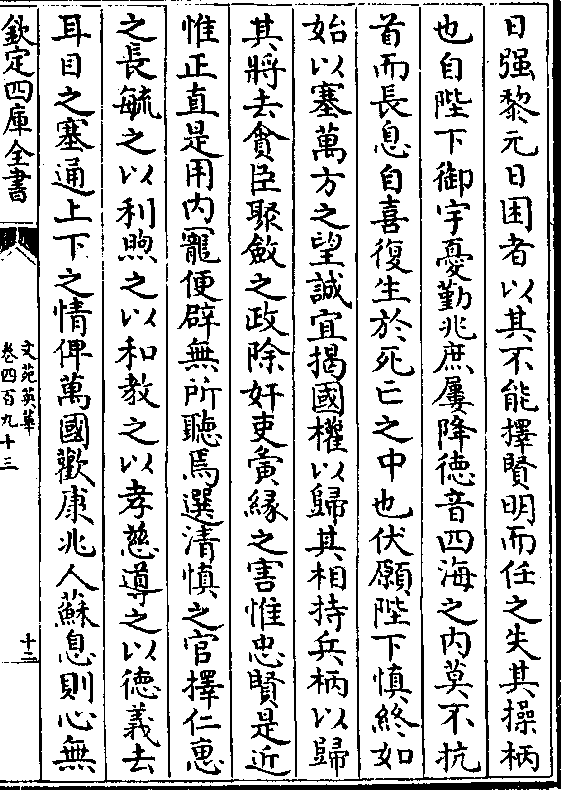 日强黎元日困者以其不能擇賢明而任之失其操柄
也自陛下御宇憂勤兆庶屢降德音四海之内莫不抗
首而長息自喜復生於死亡之中也伏願陛下慎終如
始以塞萬方之望誠宜揭國權以歸其相持兵柄以歸
其將去貪臣聚斂之政除奸吏夤緣之害惟忠賢是近
惟正直是用内寵便辟無所聽焉選清慎之官擇仁惠
之長毓之以利煦之以和教之以孝慈導之以德義去
耳目之塞通上下之情俾萬國歡康兆人蘇息則心無
欽定四庫全書
文苑英華
卷四百九十三
十二